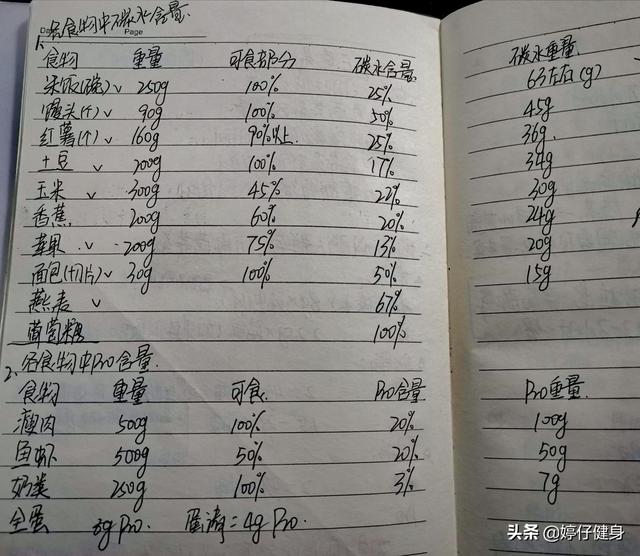 1、各食物中碳水含量.
Page
食物 重量 可食部分 碳水含量 碳水重量
米饭(碗)∨ 250g 100% 25% 63左右(g)
馒头(个)∨ 90g 100% 50% 45g
红薯(个)∨ 160g 90%以上. 25% 36g
土豆 ∨ 200g 100% 17% 34g
玉米 ∨ 300g 45% 22% 30g
香蕉 200g 60% 20% 24g
苹果 ∨ 200g 75% 13% 20g
面包(切片)∨ 30g 100% 50% 15g
燕麦 ∨ 67%
葡萄糖 100%
2、各食物中Pro含量.
食物 重量 可食. Pro含量 Pro重量
瘦肉 500g 100% 20% 100g
鱼虾 500g 50% 20% 50g
奶类 250g 100% 3% 7g
全蛋 8g Pro. 蛋清=4g Pro.
头条 @婷仔健身